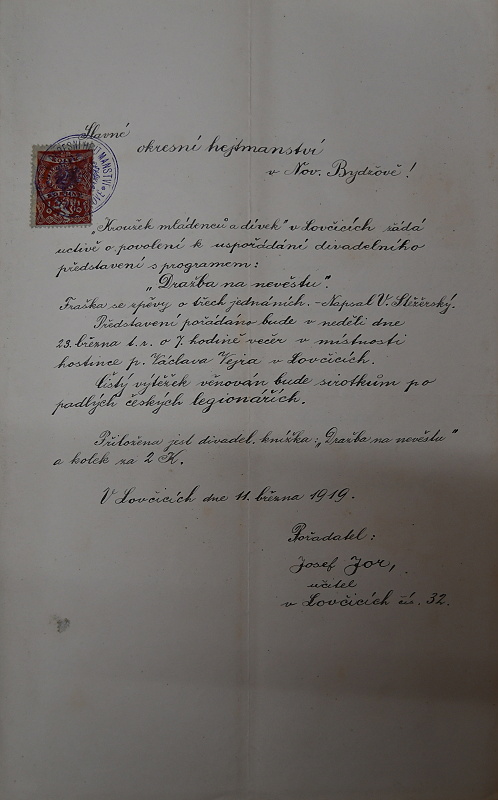 Slavné
okresní hejtmanství
v Nov. Bydžově!
„Kroužek mládenců a dívek" v Lovčicích žádá
uctivě o povolení k uspořádání divadelního
představení s programem:
„Dražba na nevěstu".
Fraška se zpěvy o třech jednáních. - Napsal V. Stěžerský.
Představení pořádáno bude v neděli dne
23. března t. r. o 7. hodině večer v místnosti
hostince p. Václava Vejra v Lovčicích.
Čistý výtěžek věnován bude sirotkům po
padlých českých legionářích.
Přiložena jest divadel. knížka: „Dražba na nevěstu"
a kolek za 2 K.
V Lovčicích dne 11. března 1919.
Pořadatel:
Josef Jor,
učitel
v Lovčicích čís. 32.